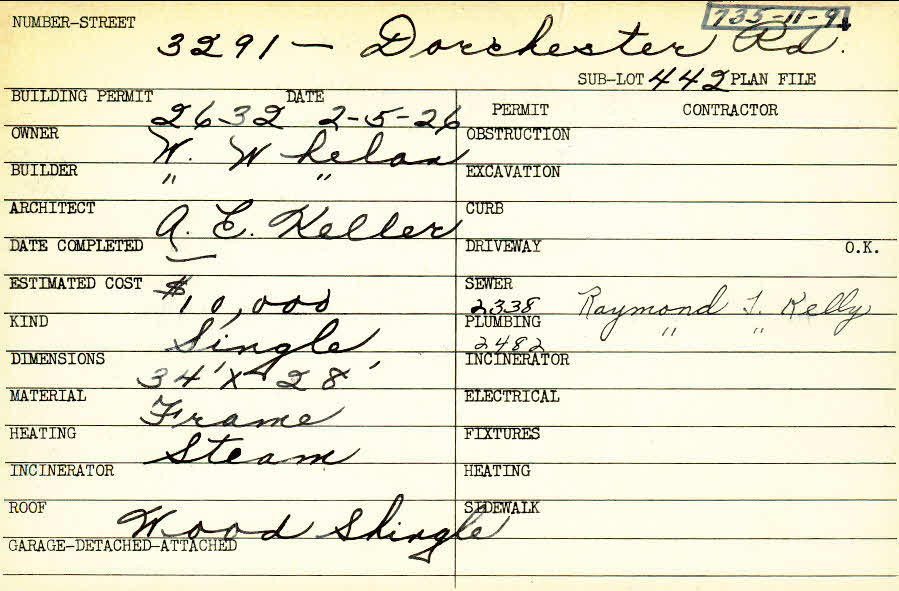 NUMBER-STREET 735-11-94
3291 — Dorchester Rd.
SUB-LOT 442 PLAN FILE
BUILDING PERMIT 2632 DATE 2-5-26
PERMIT CONTRACTOR
OWNER W. Whelan
OBSTRUCTION
BUILDER " "
EXCAVATION
ARCHITECT A. E. Keller
CURB
DATE COMPLETED —
DRIVEWAY O.K.
ESTIMATED COST $10,000
SEWER 2338 Raymond T. Kelly
KIND Single
PLUMBING 2482 " "
DIMENSIONS 34' X 28'
INCINERATOR
MATERIAL Frame
ELECTRICAL
HEATING Steam
FIXTURES
INCINERATOR
HEATING
ROOF Wood Shingle
SIDEWALK
GARAGE-DETACHED-ATTACHED